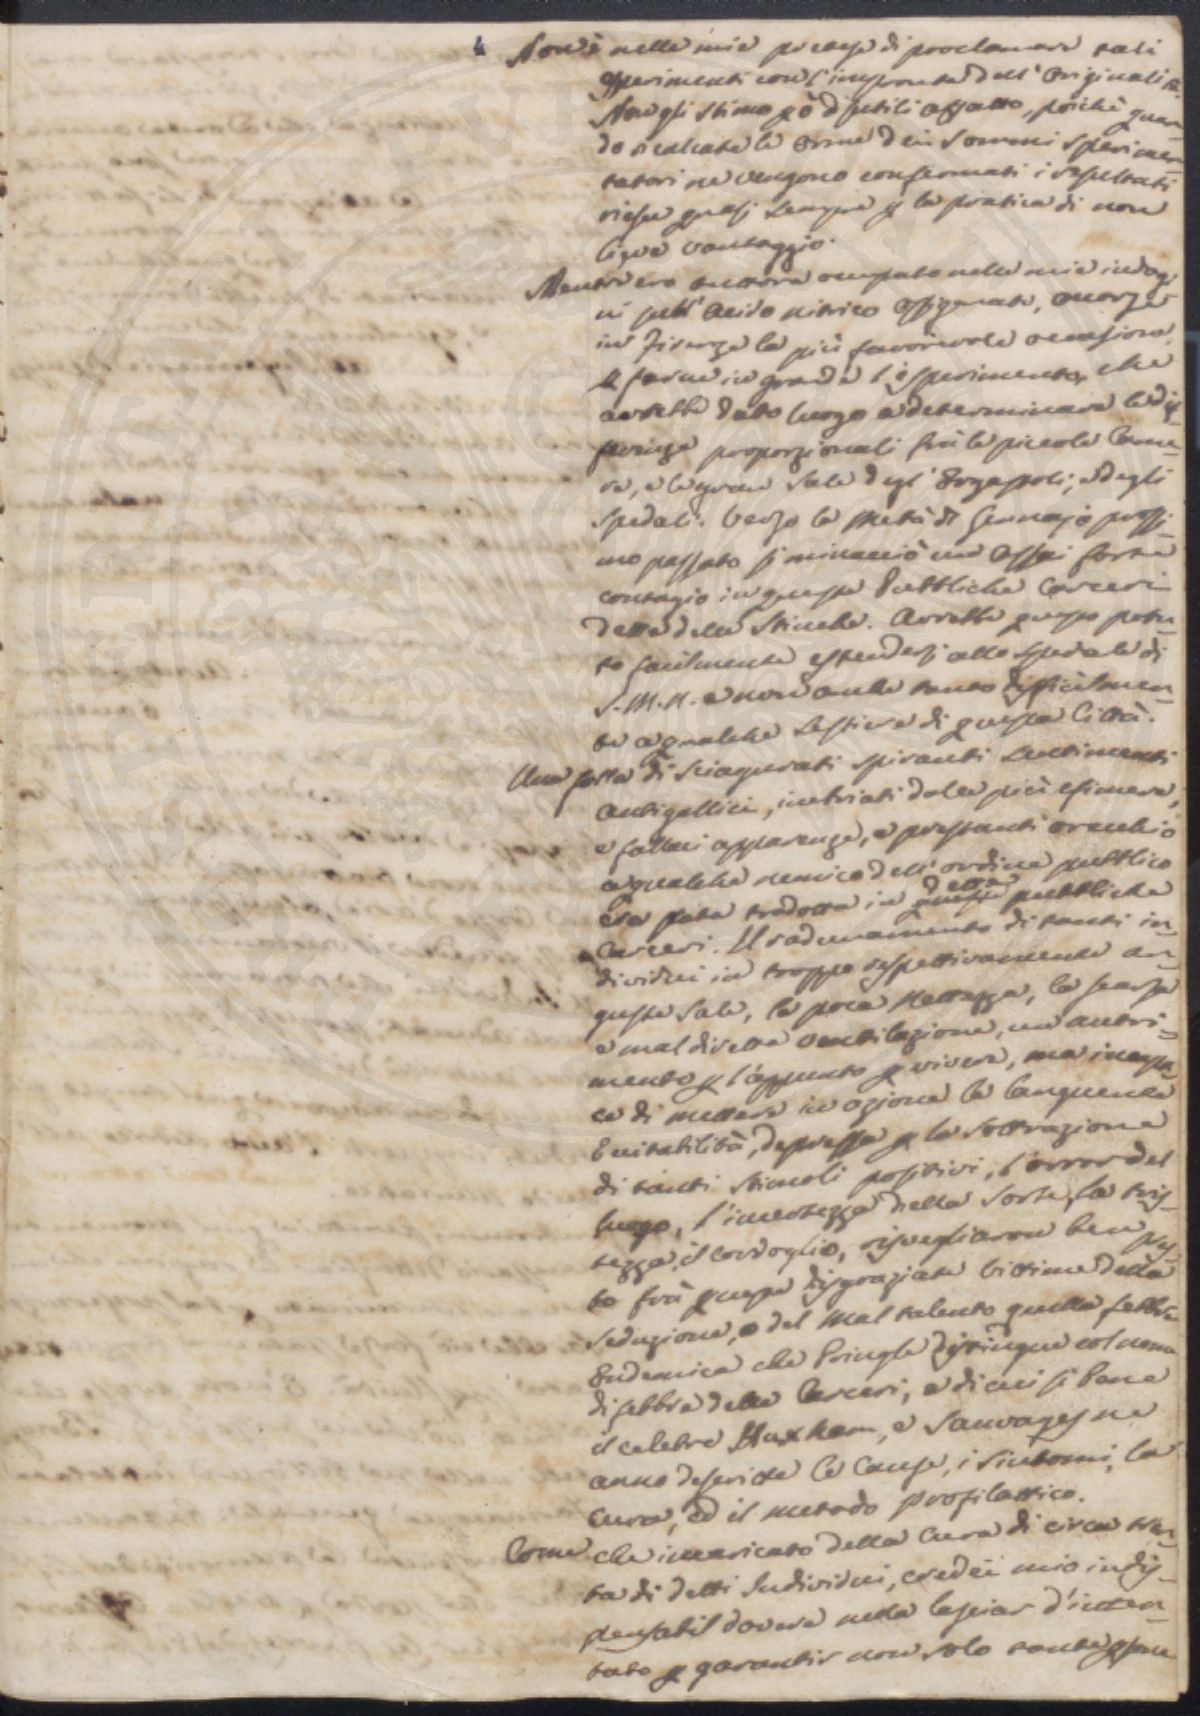 4
Non è nelle mie pretese di proclamare tali
esperimenti con l'impronta dell'Originalità.
Non gli stimo però disutili affatto, poichè quan-
do ricalcate le orme dei sommi sperimen-
tatori ne vengono confermati i resultati
riesce quasi sempre p la pratica di non
lieve vantaggio.
Mentr'ero ancora occupato nelle mie indagi-
ni sull'Acido nitrico ossigenato, emerge
in Firenze la più favorevole occasione
p farne in grande l'esperimento, che
avrebbe dato luogo a determinare le dif-
ferenze proporzionali frà le piccole came-
re, e le gran Sale degl'Ergastoli, e degli
Spedali. Verso la metà di Gennajo prossi-
mo passato si minacciò un assai forte
contagio in queste Pubbliche Carceri
dette delle Stinche. Avrebbe questo potu-
to facilmente estendersi allo Spedale di
S. M. N. e non anche tanto difficilmen-
te a qualche Sestiere di questa Città.
Una folla di sciagurati spiranti sentimenti
antigallici, inebriati dalle più efimere,
e fallaci apparenze, e prestanti orecchio
a qualche nemico dell'ordine pubblico
era stata tradotta in queste dette pubbliche
Carceri. Il radunamento di tanti in-
dividui in troppo respettivamente an-
guste Sale, la poca nettezza, la scarsa
e mal diretta ventilazione, un nutri-
mento p l'appunto p vivere, ma incapa-
ce di mettere in azione la languente
Eccitabilità, depressa p la sottrazione
di tanti stimoli positivi, l'orror del
luogo, l'incertezza della sorte, la tris-
tezza, il cordoglio, risvegliaron ben pres-
to frà queste disgraziate vittime della
seduzione, e del mal talento quella febbre
Endemica che Pringle distingue col nome
di febbre delle Carceri, e di cui si bene
il celebre Huxham, e Sauvages ne
anno descritte le Cause, i Sintomi, la
Cura, ed il metodo profilattico.
Come che incaricato della Cura di circa tren-
ta di detti Individui, credei mio indis-
pensabil dovere nulla lasciar d'inten-
tato p garantir non solo tante psone